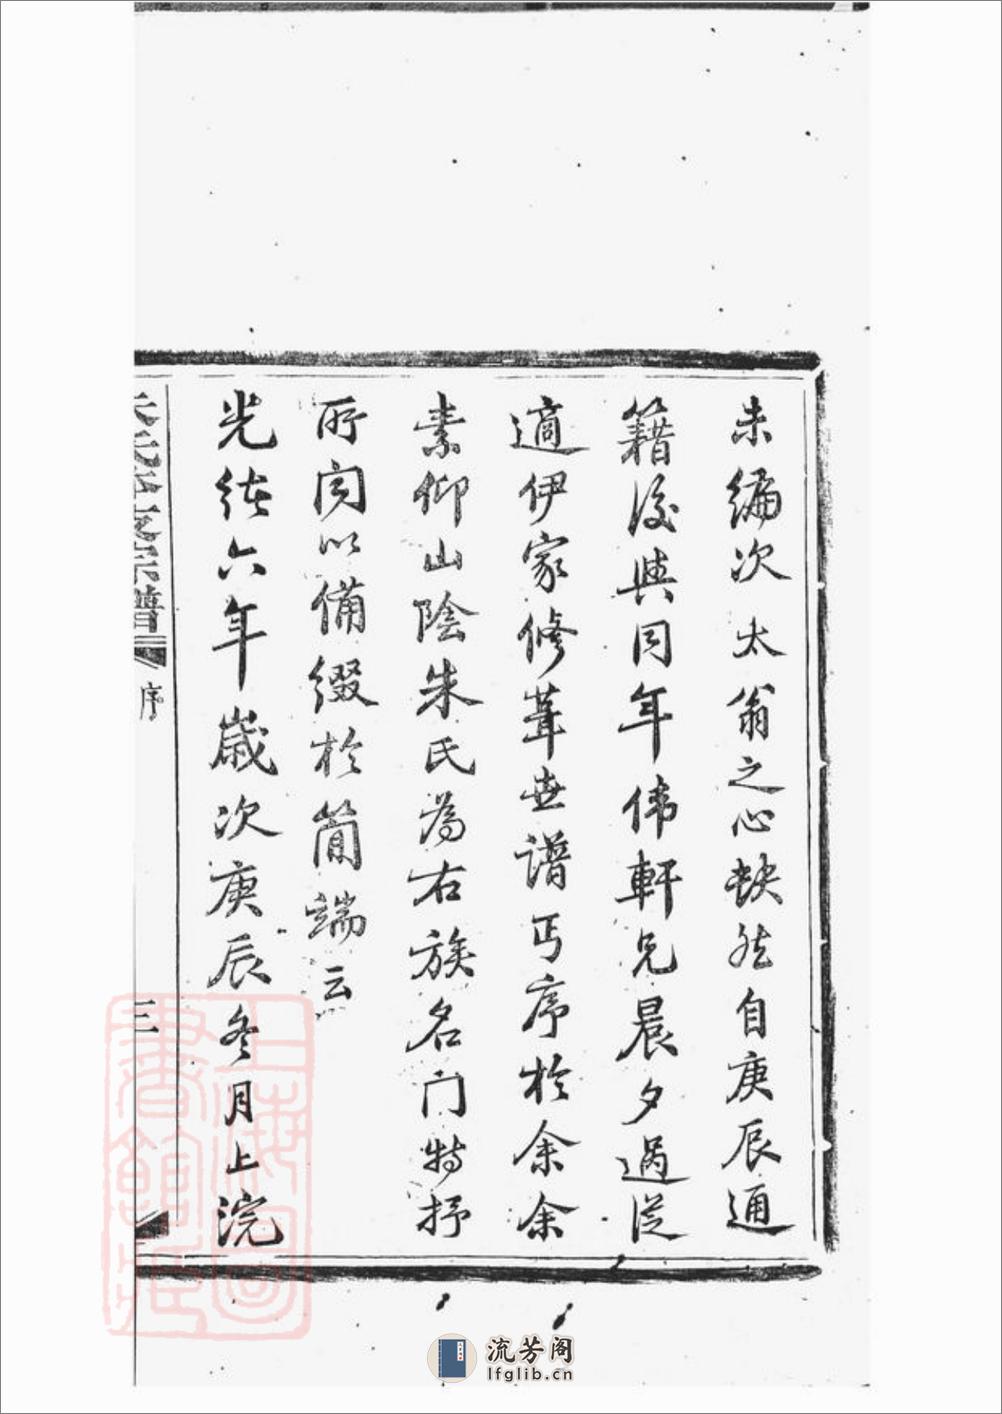 未編次太翁之心缺然自庚辰通
籍後與同年偉軒兄晨夕過從
適伊家修葺世譜丐序於余余
素仰山陰朱氏為右族名門特抒
所聞以備綴於簡端云
光緒六年歲次庚辰冬月上浣
宗譜
序
三
上海圖書館藏
流芳阁
lfglib.cn